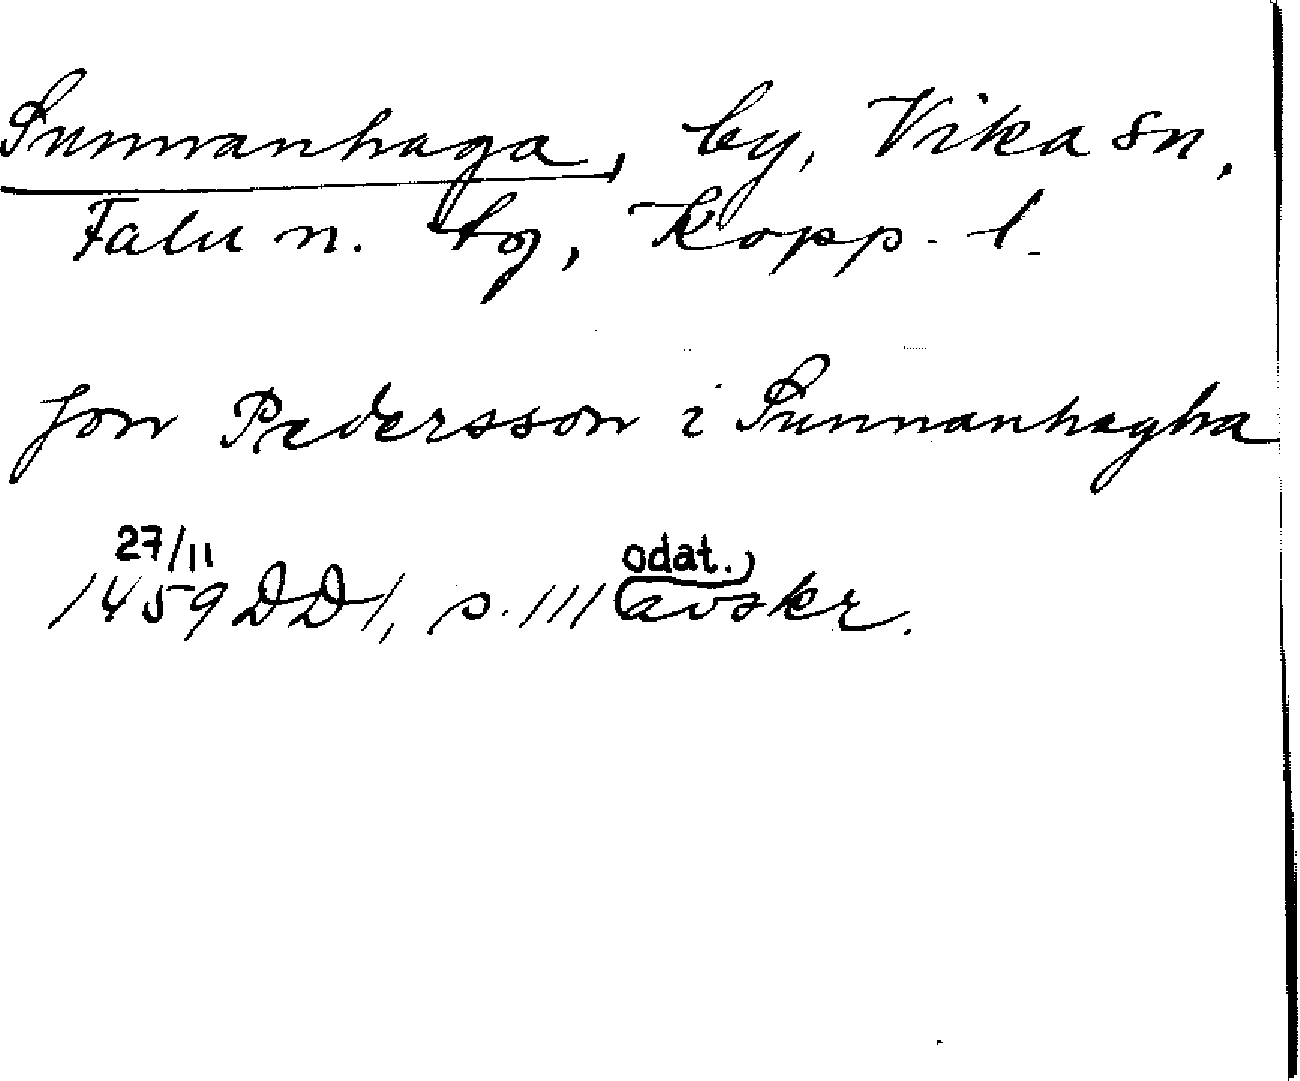 Sunnanhaga, by, Vika sn,
Falu n. tg, Kopp. l.
Jon Pedersson i Sunnanhagha
27/11 odat.)
1459 DD1, s. 111 (avskr.